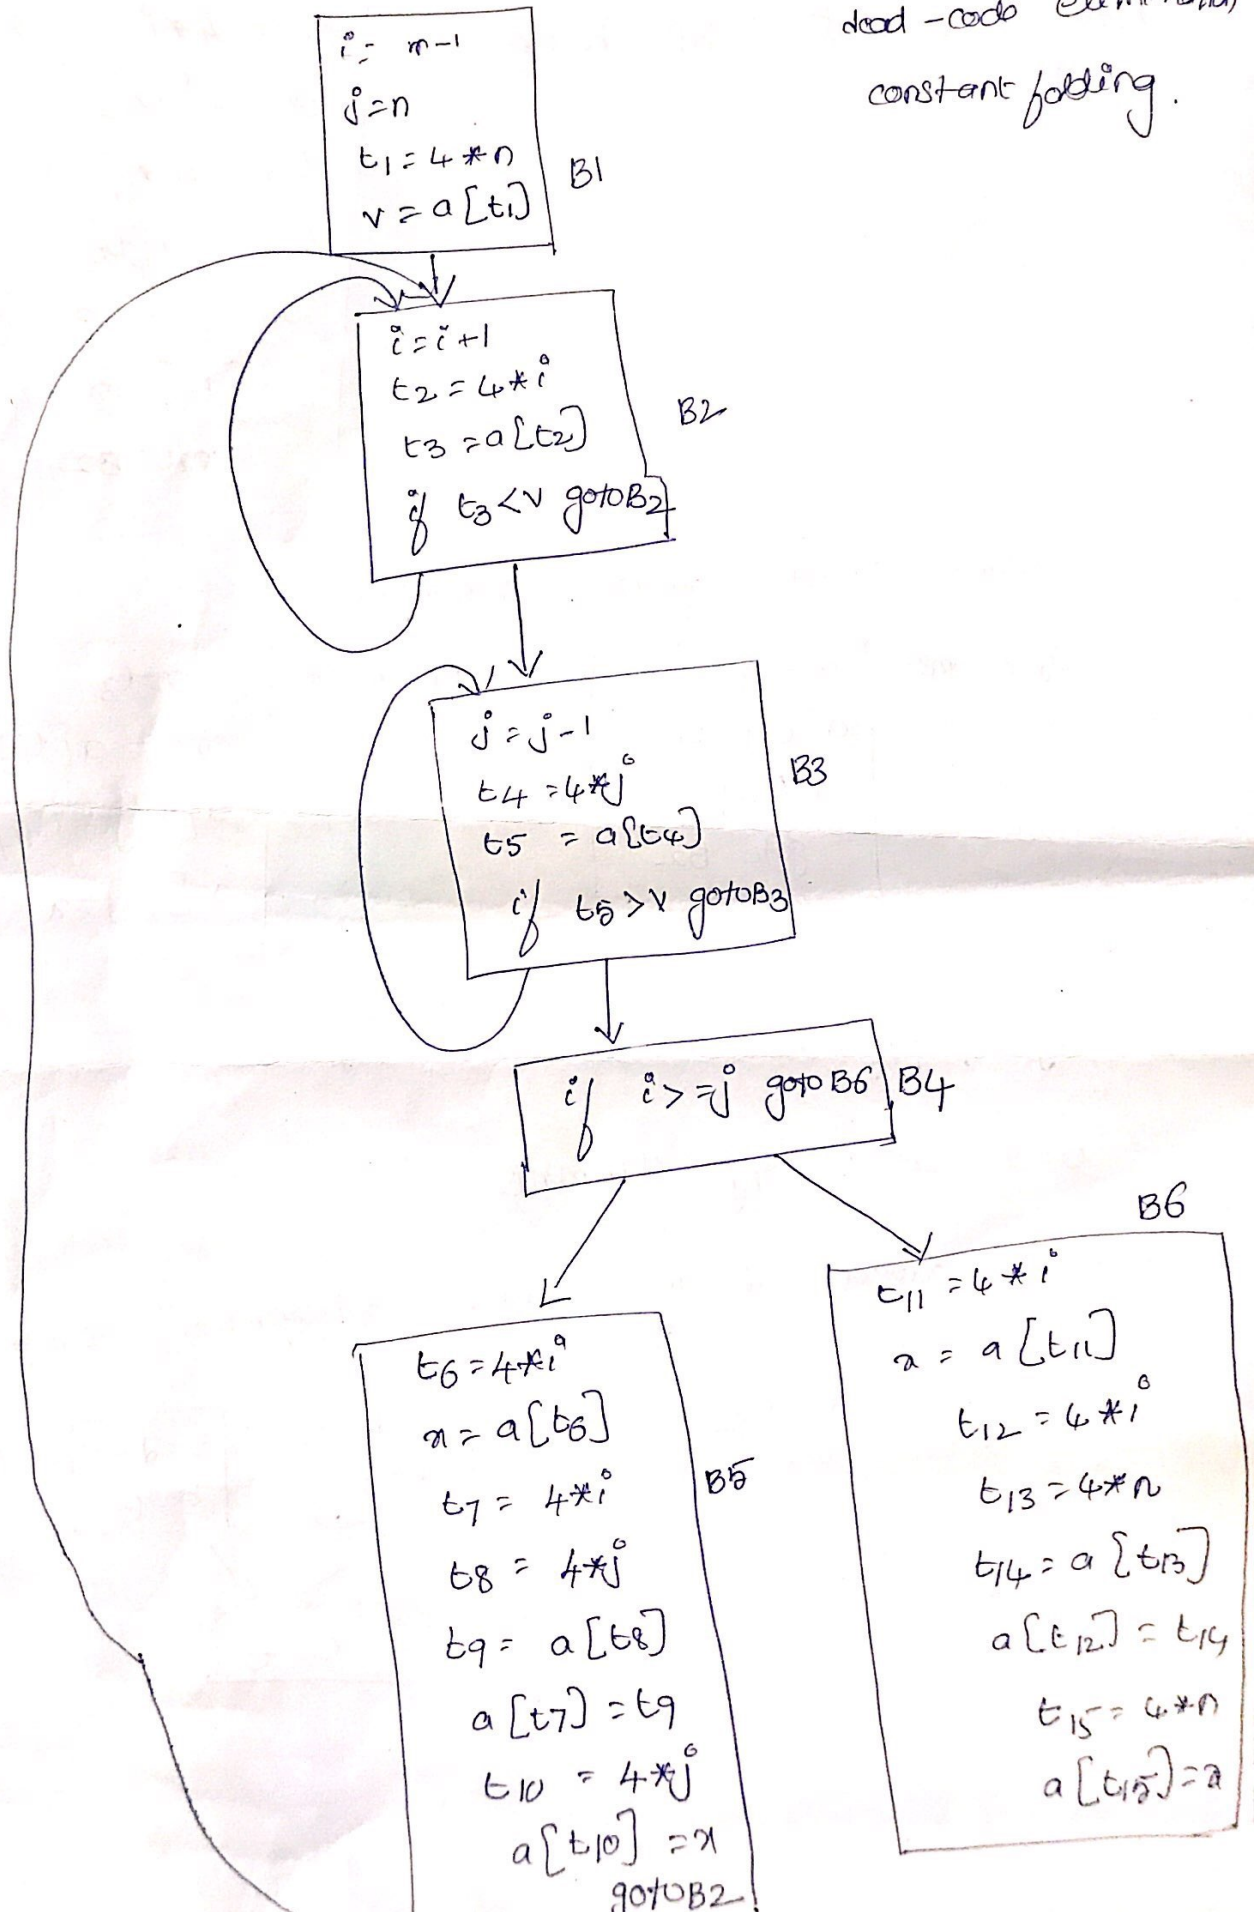 dead-code
constant folding.
i = m-1
j=n
t1 = 4*n
v = a[t1]
B1
i = i+1
t2 = 4*i
t3 = a[t2]
if t3<v goto B2
B2
j = j-1
t4 = 4*j
t5 = a[t4]
if t5>v goto B3
B3
if i>=j goto B6
B4
t6 = 4*i
x = a[t6]
t7 = 4*i
t8 = 4*j
t9 = a[t8]
a[t7] = t9
t10 = 4*j
a[t10] = x
goto B2
B5
B6
t11 = 4*i
x = a[t11]
t12 = 4*i
t13 = 4*n
t14 = a[t13]
a[t12] = t14
t15 = 4*n
a[t15] = x